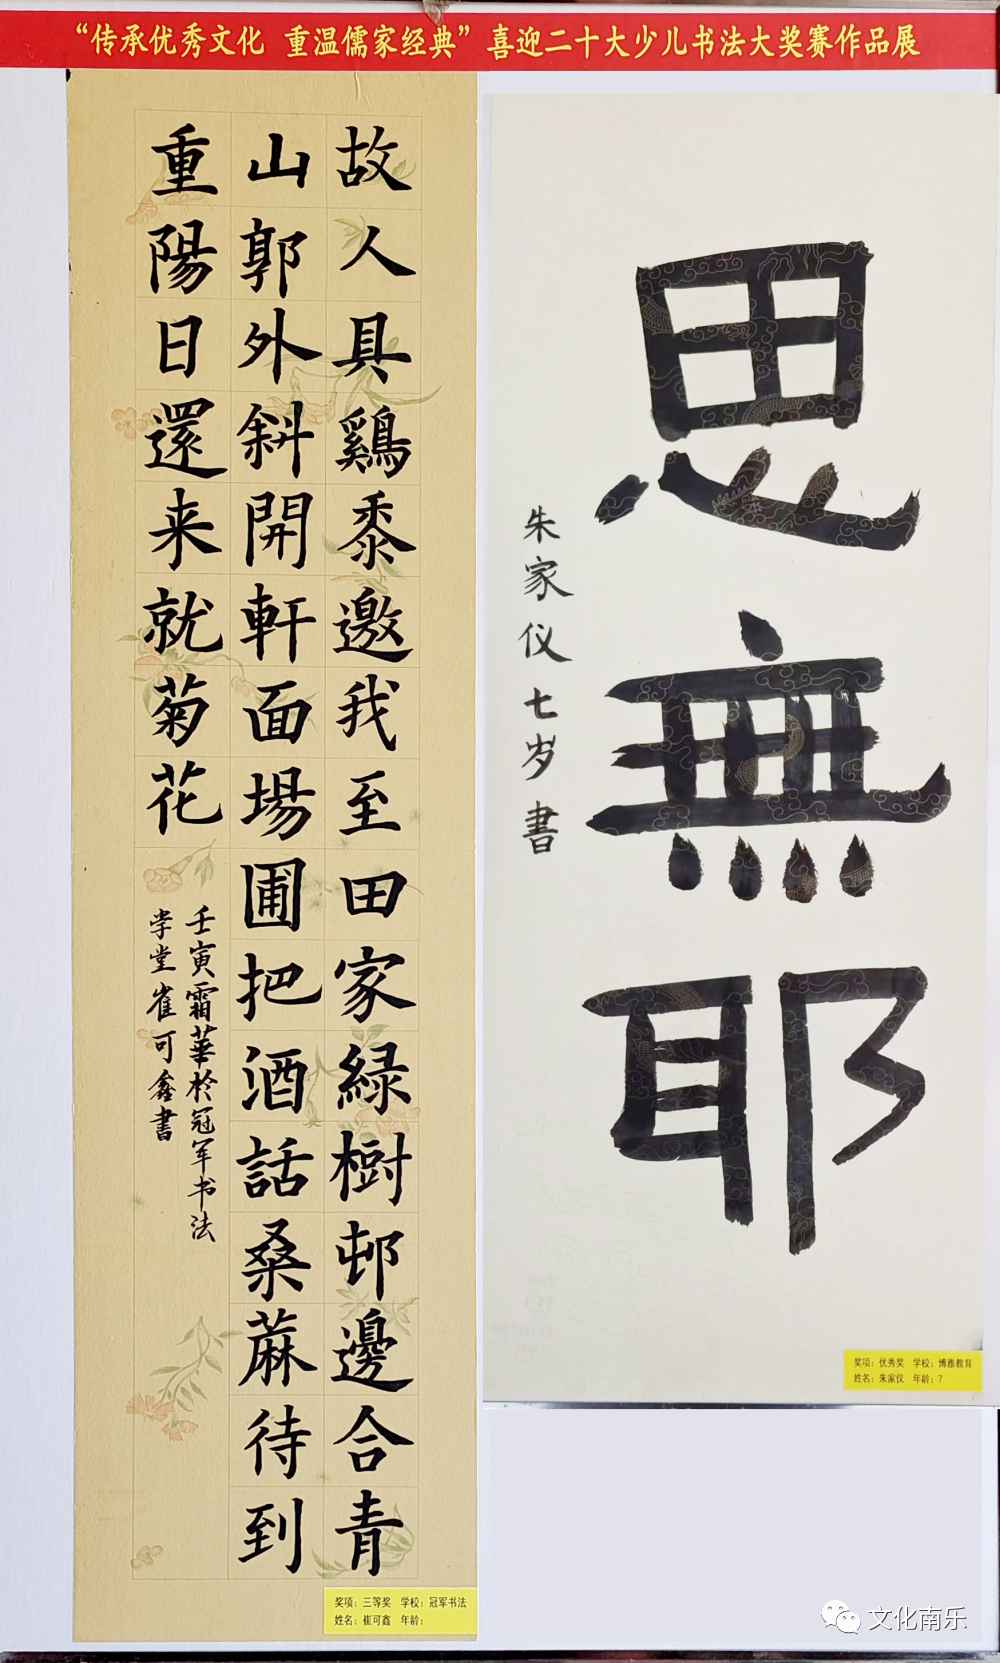 “传承优秀文化 重温儒家经典”喜迎二十大少儿书法大奖赛作品展
故人具鷄黍邀我至田家緑樹邨邊合青
山郭外斜開軒面場圃把酒話桑蔴待到
重陽日還来就菊花
壬寅霜華於冠军书法
学堂崔可鑫書
奖项：三等奖 学校：冠军书法
姓名：崔可鑫 年龄：
思無耶
朱家仪七岁書
奖项：优秀奖 学校：博雅教育
姓名：朱家仪 年龄：7
文化南乐